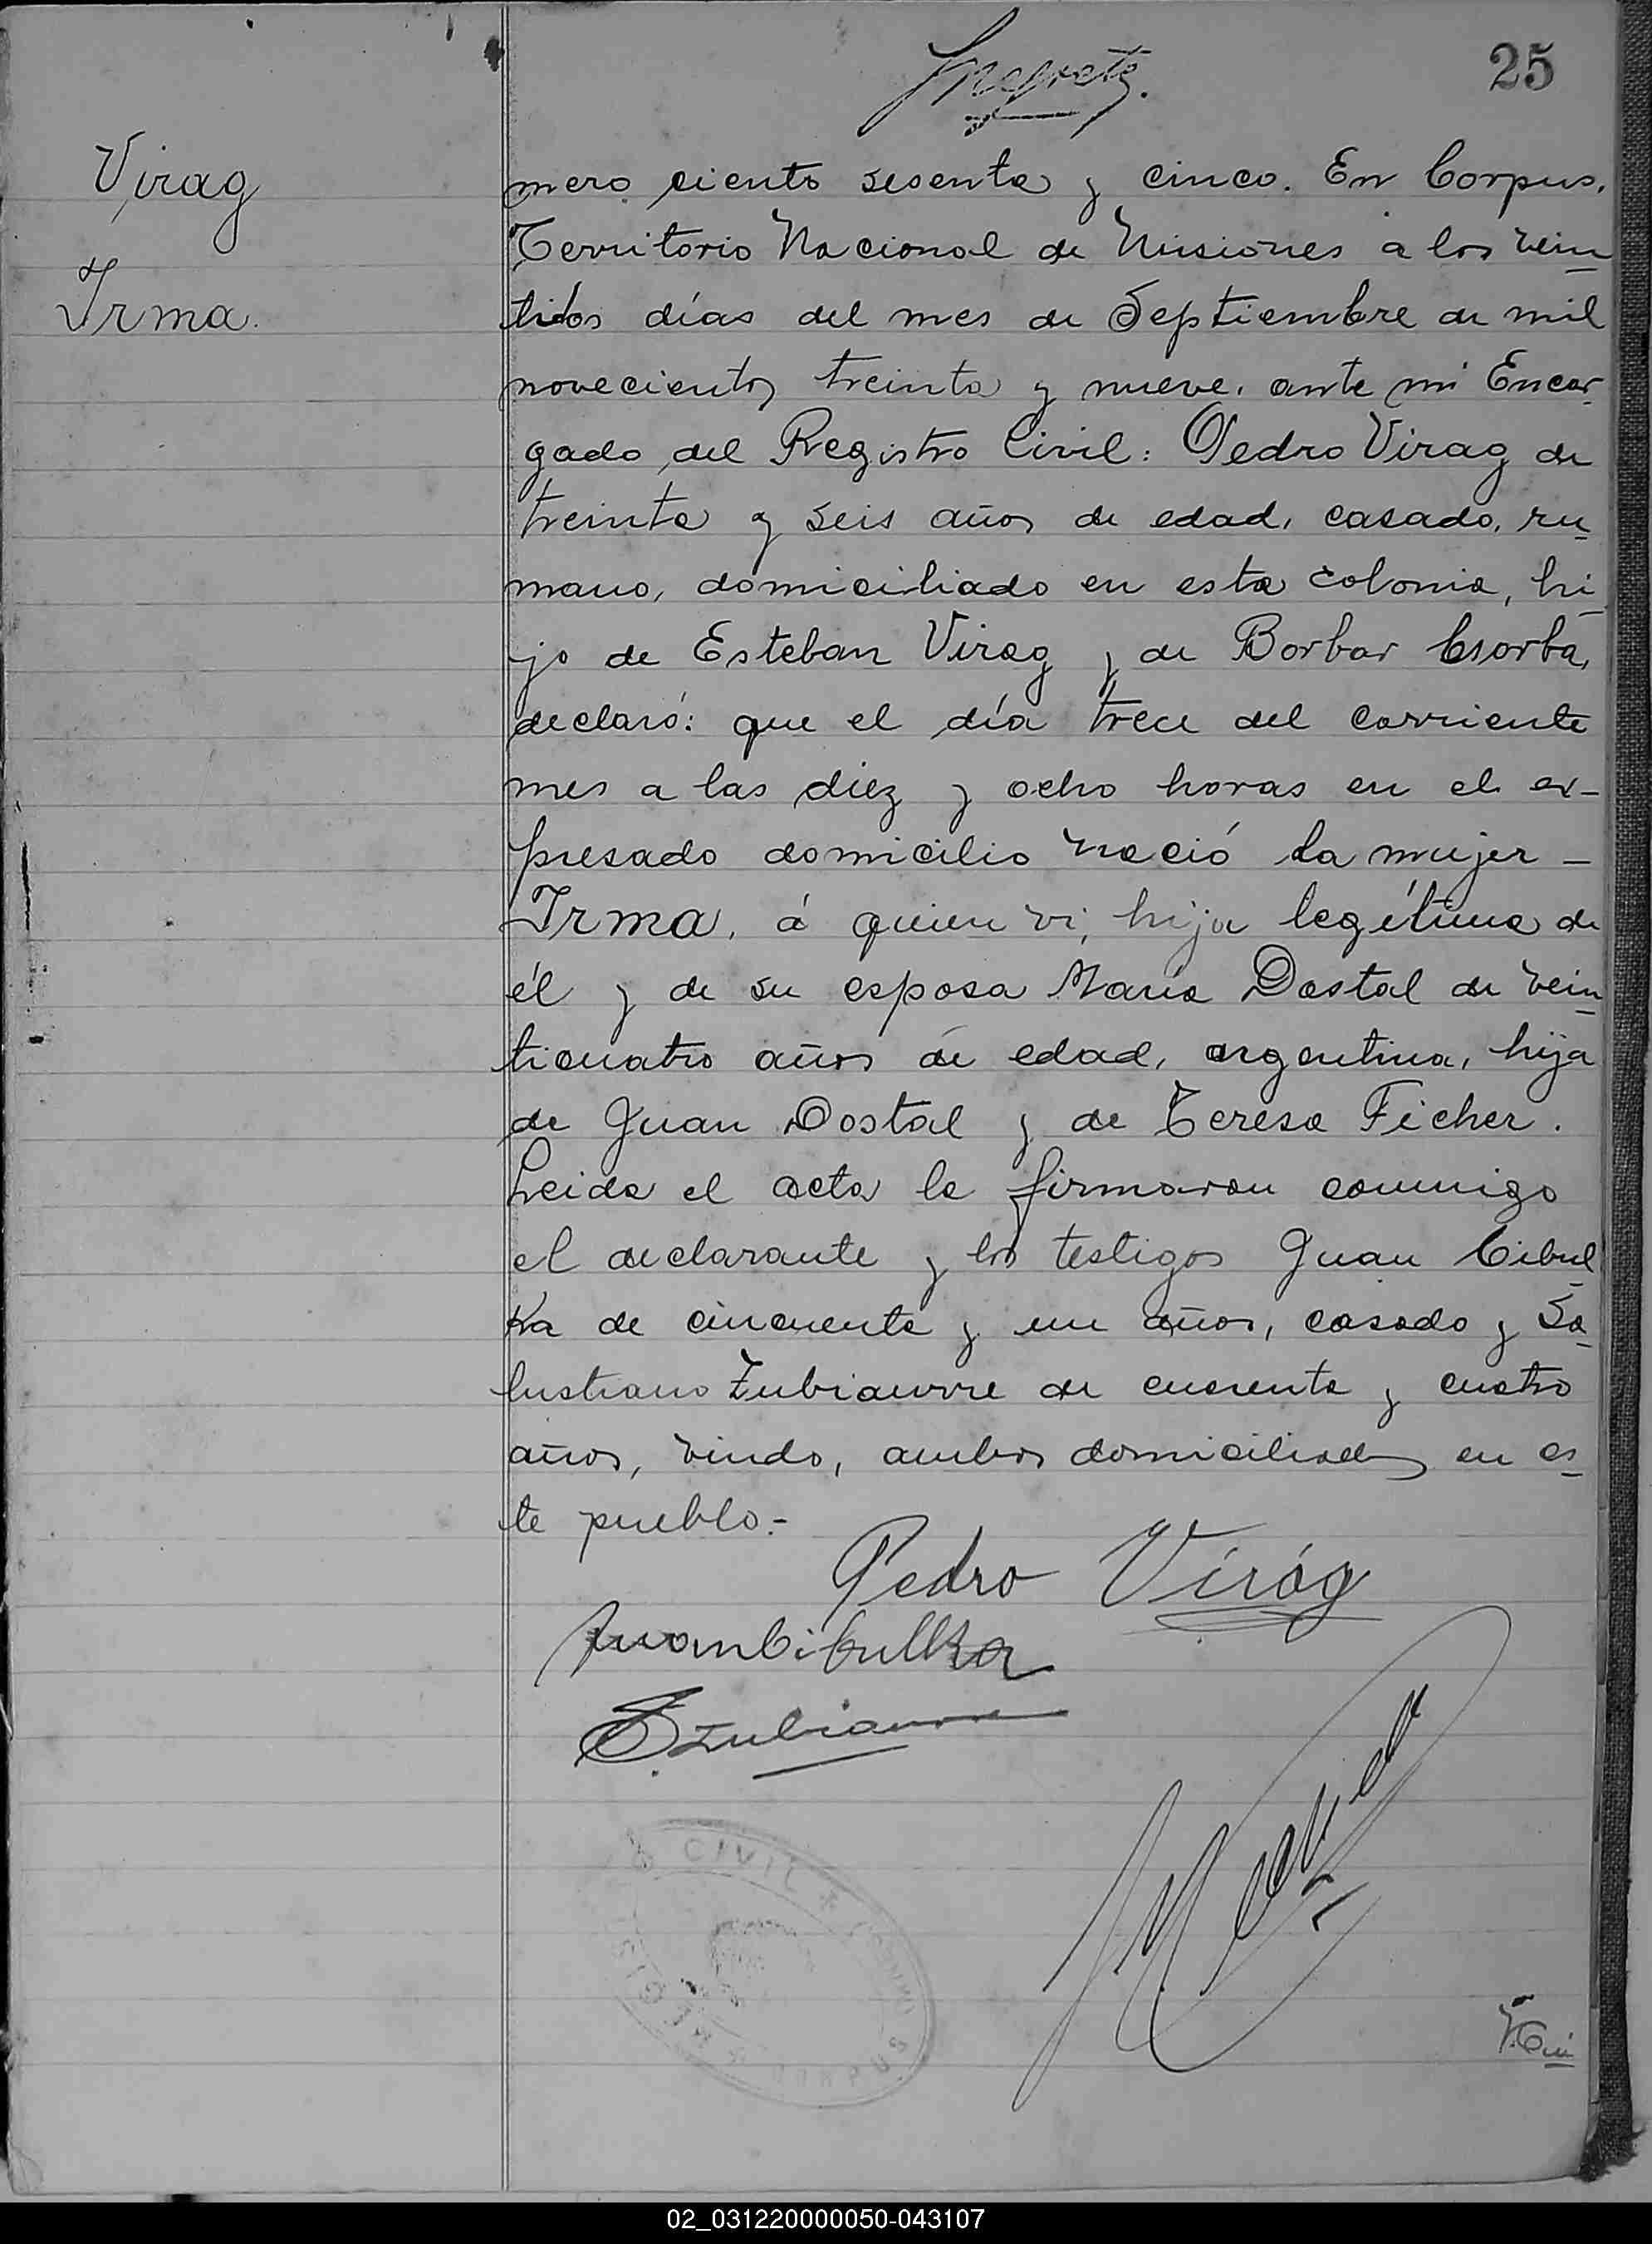 25
Virag
Irma.
mero ciento sesenta y cinco. En Corpus,
Territorio Nacional de Misiones a los vein
tidos días del mes de Septiembre de mil
novecientos treinta y nueve, ante mi Encar
gado del Registro Civil: Pedro Virag de
treinta y seis años de edad, casado, ru
mano, domiciliado en esta colonia, hi
jo de Esteban Virag y de Borbar Csorba,
declaró: que el día trece del corriente
mes a las diez y ocho horas en el ex-
presado domicilio nació la mujer -
Irma, á quien vi, hija legítima de
él y de su esposa María Dostal de vein
ticuatro años de edad, argentina, hija
de Juan Dostal y de Teresa Ficher.
Leida el acta la firmaron conmigo
el declarante y los testigos Juan Cibul
ka de cincuenta y un años, casado y Sa
lustiano Zubiaurre de cuarenta y cuatro
años, viudo, ambos domiciliados en es
te pueblo.-
Pedro Virág
Juan Cibulka
S. Zubiaurre
CIVIL
CORPUS
02_031220000050-043107